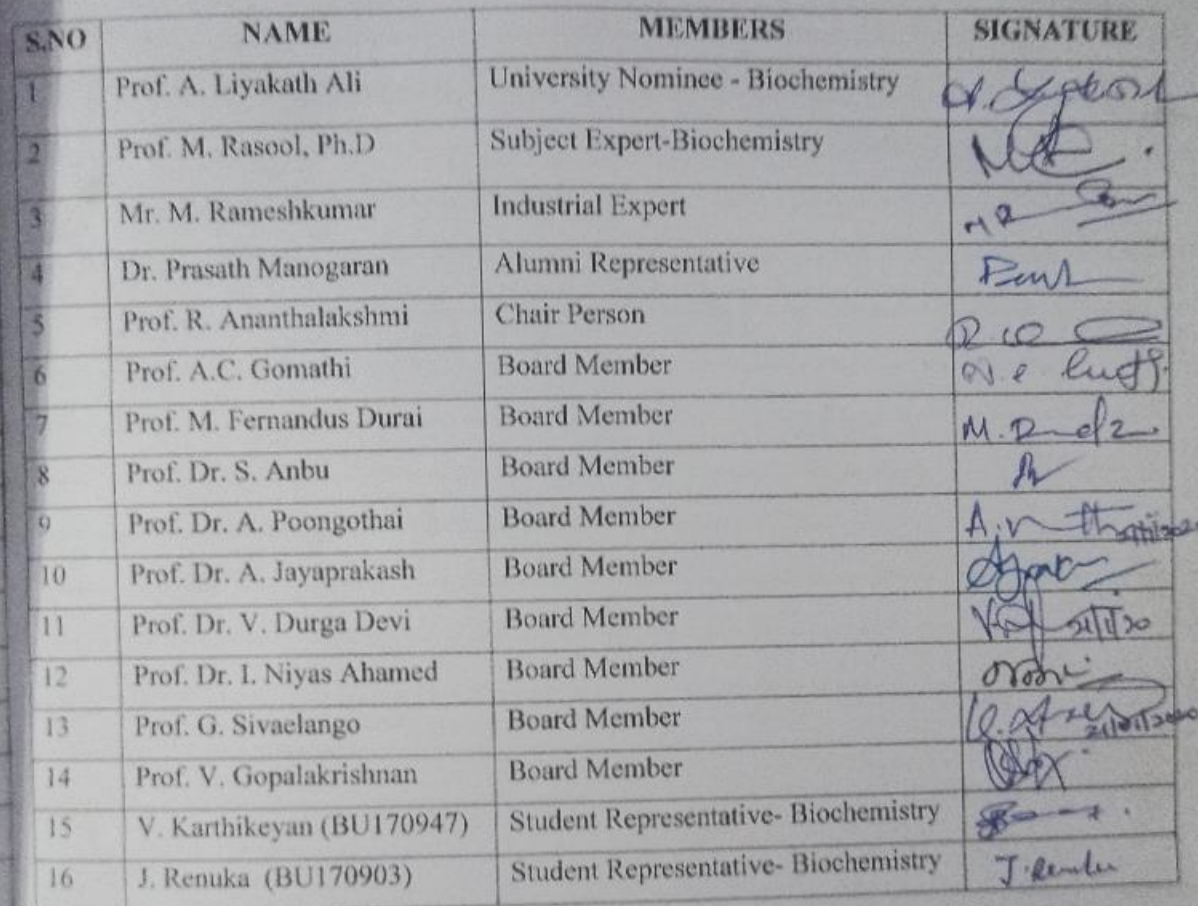 S.NO NAME MEMBERS SIGNATURE
1 Prof. A. Liyakath Ali University Nominee - Biochemistry
2 Prof. M. Rasool, Ph.D Subject Expert-Biochemistry
3 Mr. M. Rameshkumar Industrial Expert
4 Dr. Prasath Manogaran Alumni Representative
5 Prof. R. Ananthalakshmi Chair Person
6 Prof. A.C. Gomathi Board Member
7 Prof. M. Fernandus Durai Board Member
8 Prof. Dr. S. Anbu Board Member
9 Prof. Dr. A. Poongothai Board Member
10 Prof. Dr. A. Jayaprakash Board Member
11 Prof. Dr. V. Durga Devi Board Member 21/1/20
12 Prof. Dr. I. Niyas Ahamed Board Member
13 Prof. G. Sivaelango Board Member 21/01/2020
14 Prof. V. Gopalakrishnan Board Member
15 V. Karthikeyan (BU170947) Student Representative- Biochemistry
16 J. Renuka (BU170903) Student Representative- Biochemistry J. Renuka